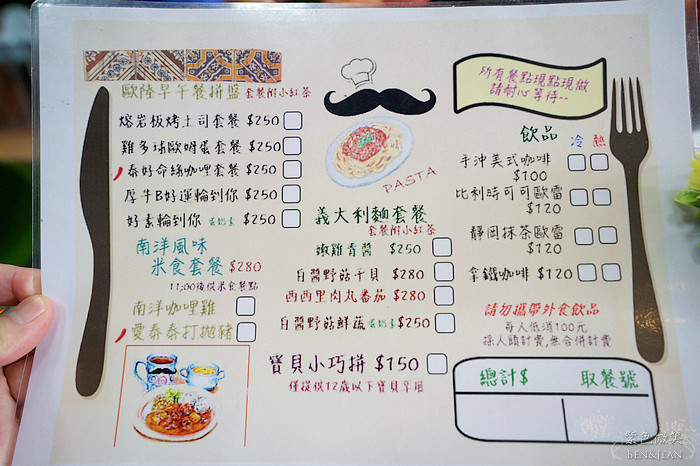 歐陸早午餐拼盤 套餐附小紅茶
熔岩板烤土司套餐 $250
雞多球歐姆蛋套餐 $250
泰好命絲咖哩套餐 $250
厚牛B好運輪到你 $250
好素輪到你 蛋奶素 $250
南洋風味
米食套餐 $280
11:00後供米食餐點
南洋咖哩雞
愛泰泰打拋豬
PASTA
義大利麵套餐
套餐附小紅茶
嫩雞青醬 $250
白醬野菇干貝 $280
西西里肉丸番茄 $280
白醬野菇鮮蔬 蛋奶素 $250
寶貝小巧拼 $150
僅提供12歲以下寶貝享用
所有餐點現點現做
請耐心等待--
飲品 冷 熱
手沖美式咖啡
$100
比利時可可歐蕾
$120
靜岡抹茶歐蕾
$120
拿鐵咖啡 $120
請勿攜帶外食飲品
每人低消100元
採人頭計費,無合併計費
總計$ 取餐號
紫色微笑
BEN&JEAN